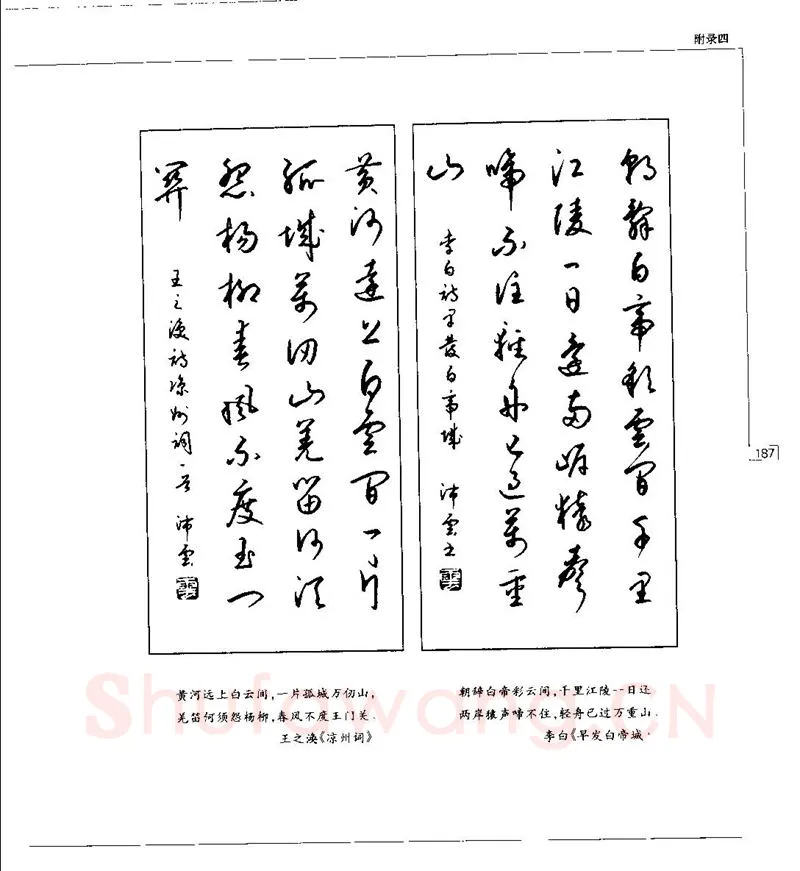 附录四
朝辭白帝彩雲間千里
江陵一日還兩岸猿聲
啼不住輕舟已過萬重
山
李白詩早發白帝城 沛雲書
黄河遠上白雲間一片
孤城萬仞山羌笛何須
怨楊柳春風不度玉门
關
王之渙詩涼州詞一首 沛雲
187
黄河远上白云间,一片孤城万仞山,
羌笛何须怨杨柳,春风不度玉门关.
王之涣《凉州词》
朝辞白帝彩云间,千里江陵一日还
两岸猿声啼不住,轻舟已过万重山.
李白《早发白帝城》
Shufawang.CN